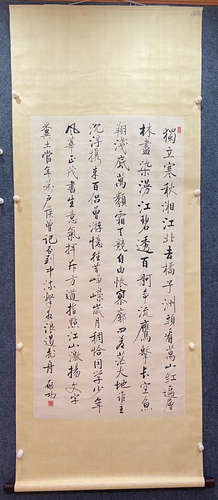 獨立寒秋湘江北去橘子洲頭看萬山紅遍層
林盡染漫江碧透百舸爭流鷹擊長空魚
翔淺底萬類霜天競自由悵寥廓問蒼茫大地誰主
沉浮攜來百侶曾游憶往昔崢嶸歲月稠恰同学少年
風華正茂書生意氣揮斥方遒指點江山激揚文字
糞土當年萬戶侯曾記否到中流擊水浪遏飛舟 启功